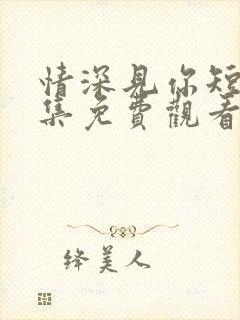 情深見你短
集免費觀看
絳美人